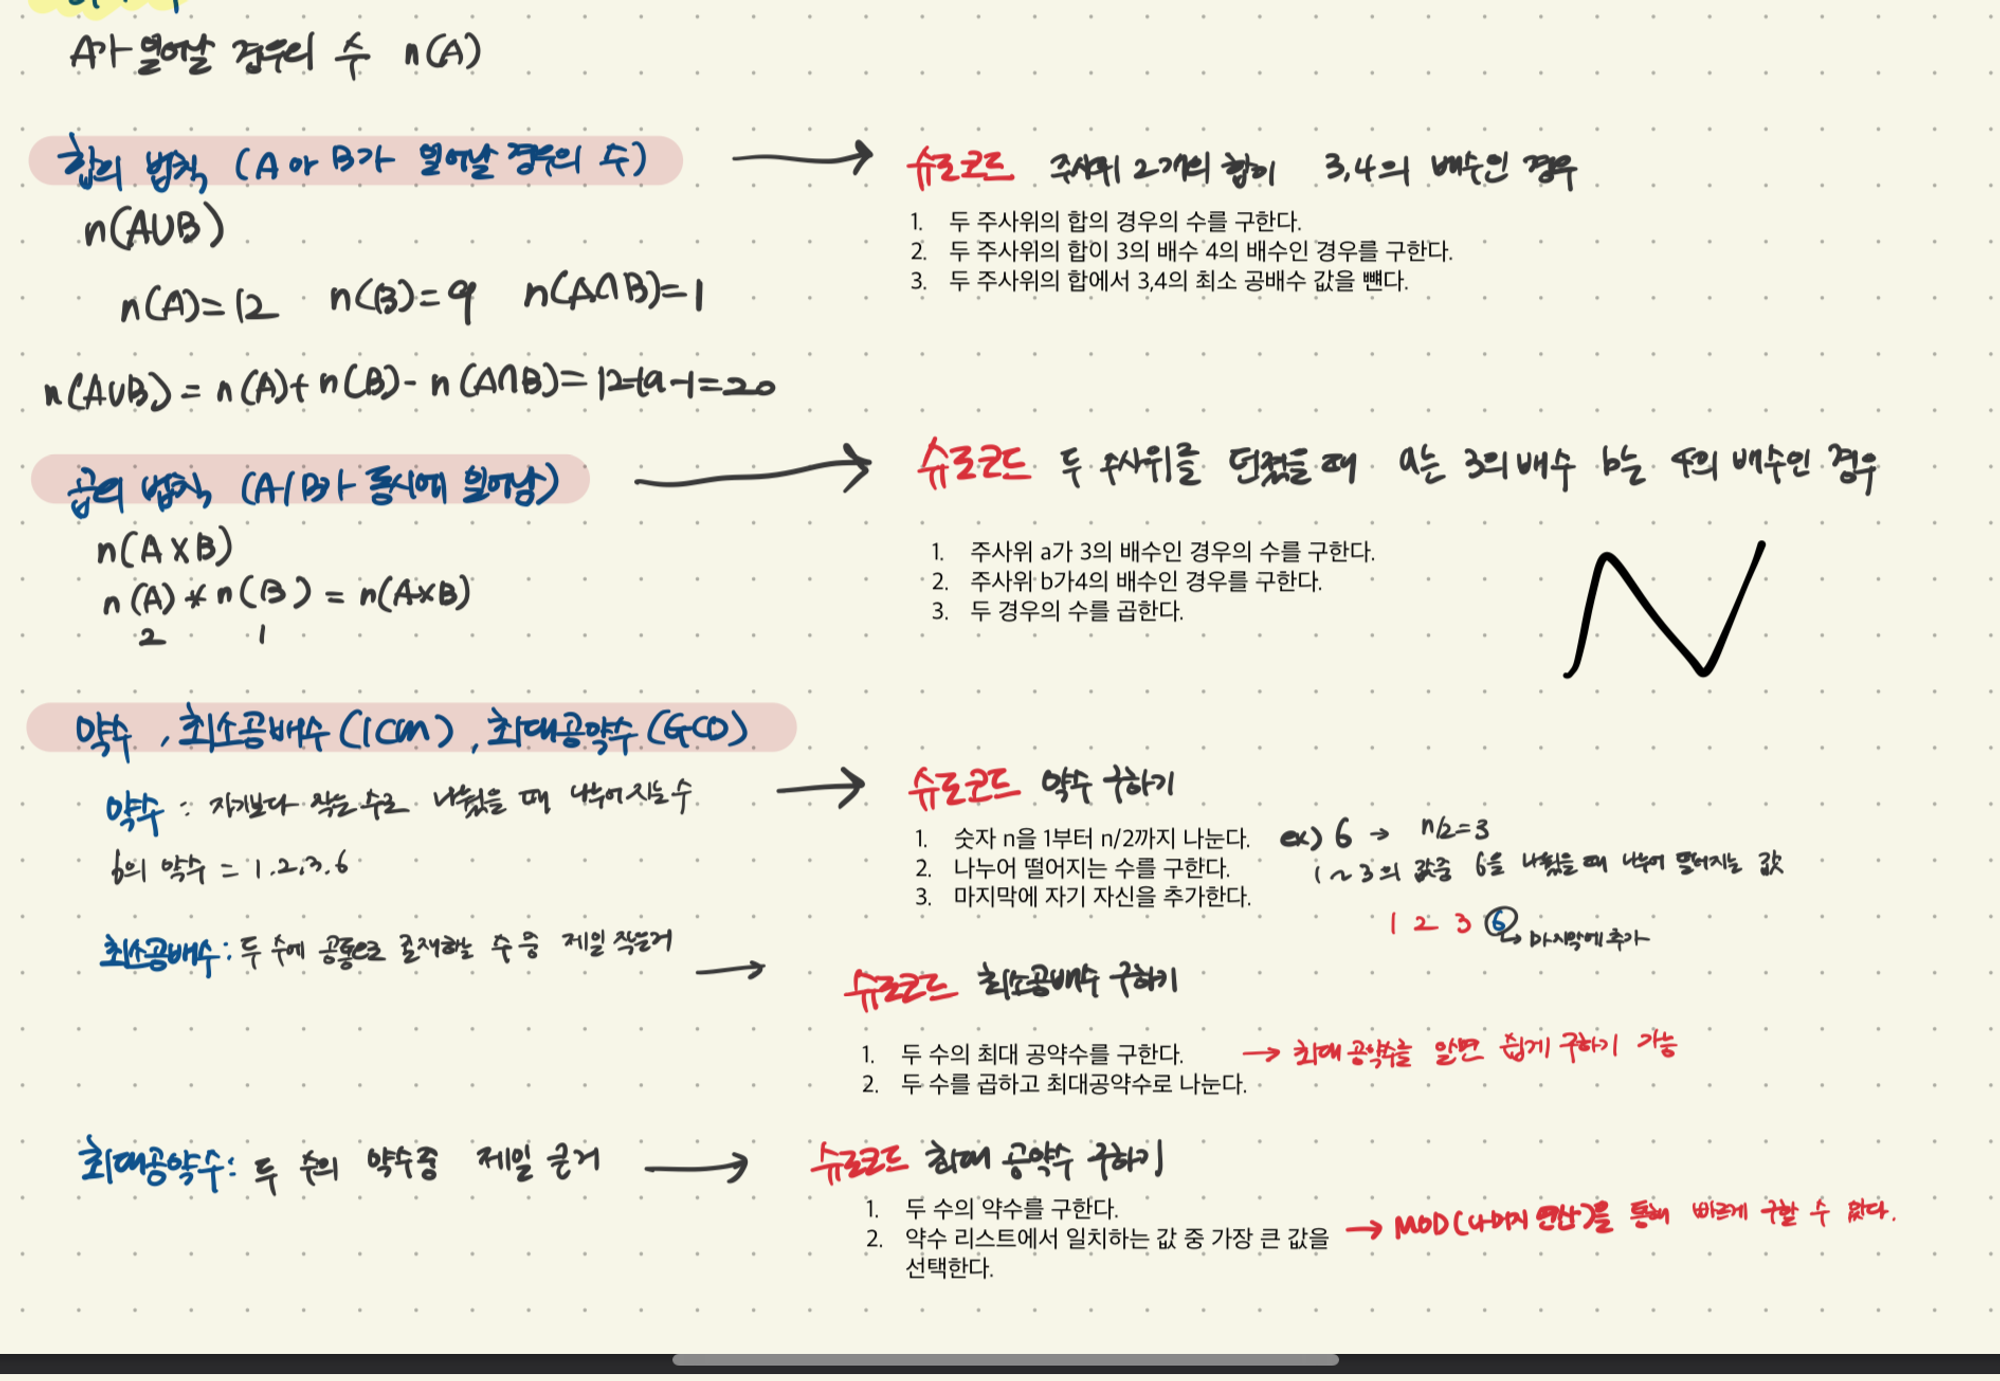 A가 일어날 경우의 수 n(A)
합의 법칙 (A or B가 일어날 경우의 수)
n(A∪B)
n(A)=12 n(B)=9 n(A∩B)=1
n(A∪B) = n(A)+n(B)-n(A∩B)=12+9-1=20
슈로코드 주사위 2개의 합이 3,4의 배수인 경우
1. 두 주사위의 합의 경우의 수를 구한다.
2. 두 주사위의 합이 3의 배수 4의 배수인 경우를 구한다.
3. 두 주사위의 합에서 3,4의 최소 공배수 값을 뺀다.
곱의 법칙 (A/B가 동시에 일어남)
n(A×B)
n(A)*n(B) = n(A×B)
2 1
슈로코드 두 주사위를 던졌을 때 a는 3의 배수 b는 4의 배수인 경우
1. 주사위 a가 3의 배수인 경우의 수를 구한다.
2. 주사위 b가4의 배수인 경우를 구한다.
3. 두 경우의 수를 곱한다.
N
약수, 최소공배수(lCm), 최대공약수(GCD)
약수 : 자기보다 작은 수로 나눴을 때 나누어지는 수
6의 약수 = 1.2.3.6
슈로코드 약수 구하기
1. 숫자 n을 1부터 n/2까지 나눈다.
2. 나누어 떨어지는 수를 구한다.
3. 마지막에 자기 자신을 추가한다.
ex) 6 → n/2=3
1~3의 값중 6을 나눴을 때 나누어 떨어지는 값
1 2 3 6
↳ 마지막에 추가
최소공배수: 두 수에 공통으로 존재하는 수 중 제일 작은거
슈로코드 최소공배수 구하기
1. 두 수의 최대 공약수를 구한다.
2. 두 수를 곱하고 최대공약수로 나눈다.
→ 최대 공약수를 알면 쉽게 구하기 가능
최대공약수: 두 수의 약수중 제일 큰거
슈로코드 최대 공약수 구하기
1. 두 수의 약수를 구한다.
2. 약수 리스트에서 일치하는 값 중 가장 큰 값을
선택한다.
→ MOD(나머지 연산)을 통해 빠르게 구할 수 있다.